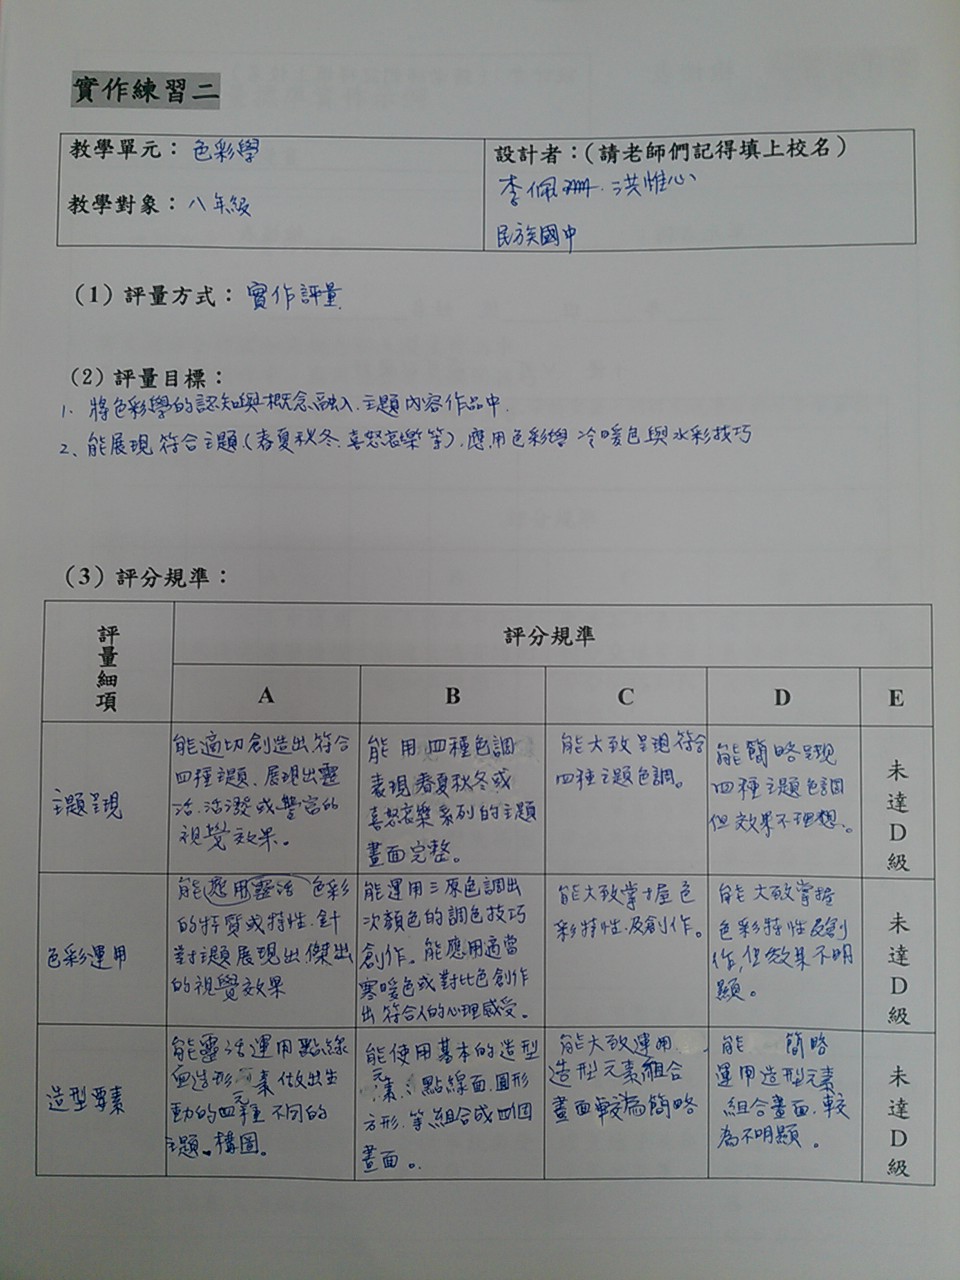 實作練習二
教學單元：色彩學
教學對象：八年級
設計者：(請老師們記得填上校名)
李佩珊、洪惟心
民族國中
(1) 評量方式：實作評量
(2) 評量目標：
1、將色彩學的認知與概念融入主題內容作品中.
2、能展現符合主題(春夏秋冬、喜怒哀樂等).應用色彩學冷暖色與水彩技巧
(3) 評分規準：
評量細項
評分規準
A
B
C
D
E
主題呈現
能適切創造出符合
四種主題、展現出靈
活、活潑或豐富的
視覺效果。
能用四種色調
表現春夏秋冬或
喜怒哀樂系列的主題
畫面完整。
能大致呈現符合
四種主題色調。
能簡略呈現
四種主題色調
但效果不理想。
未達D級
色彩運用
能應用靈活色彩
的特質或特性.針
對主題展現出傑出
的視覺效果
能運用三原色調出
次顏色的調色技巧
創作。能應用適當
寒暖色或對比色創作
出符合人的心理感受。
能大致掌握色
彩特性及創作。
能大致掌握
色彩特性及創
作,但效果不明
顯。
未達D級
造型要素
能靈活運用點線
面造形元素做出生
動的四種不同的
主題。構圖。
能使用基本的造型
元素:點線面.圓形
方形.等組合成四個
畫面。
能大致運用
造型元素組合
畫面較為簡略
能簡略
運用造型元素
組合畫面.較
為不明顯。
未達D級